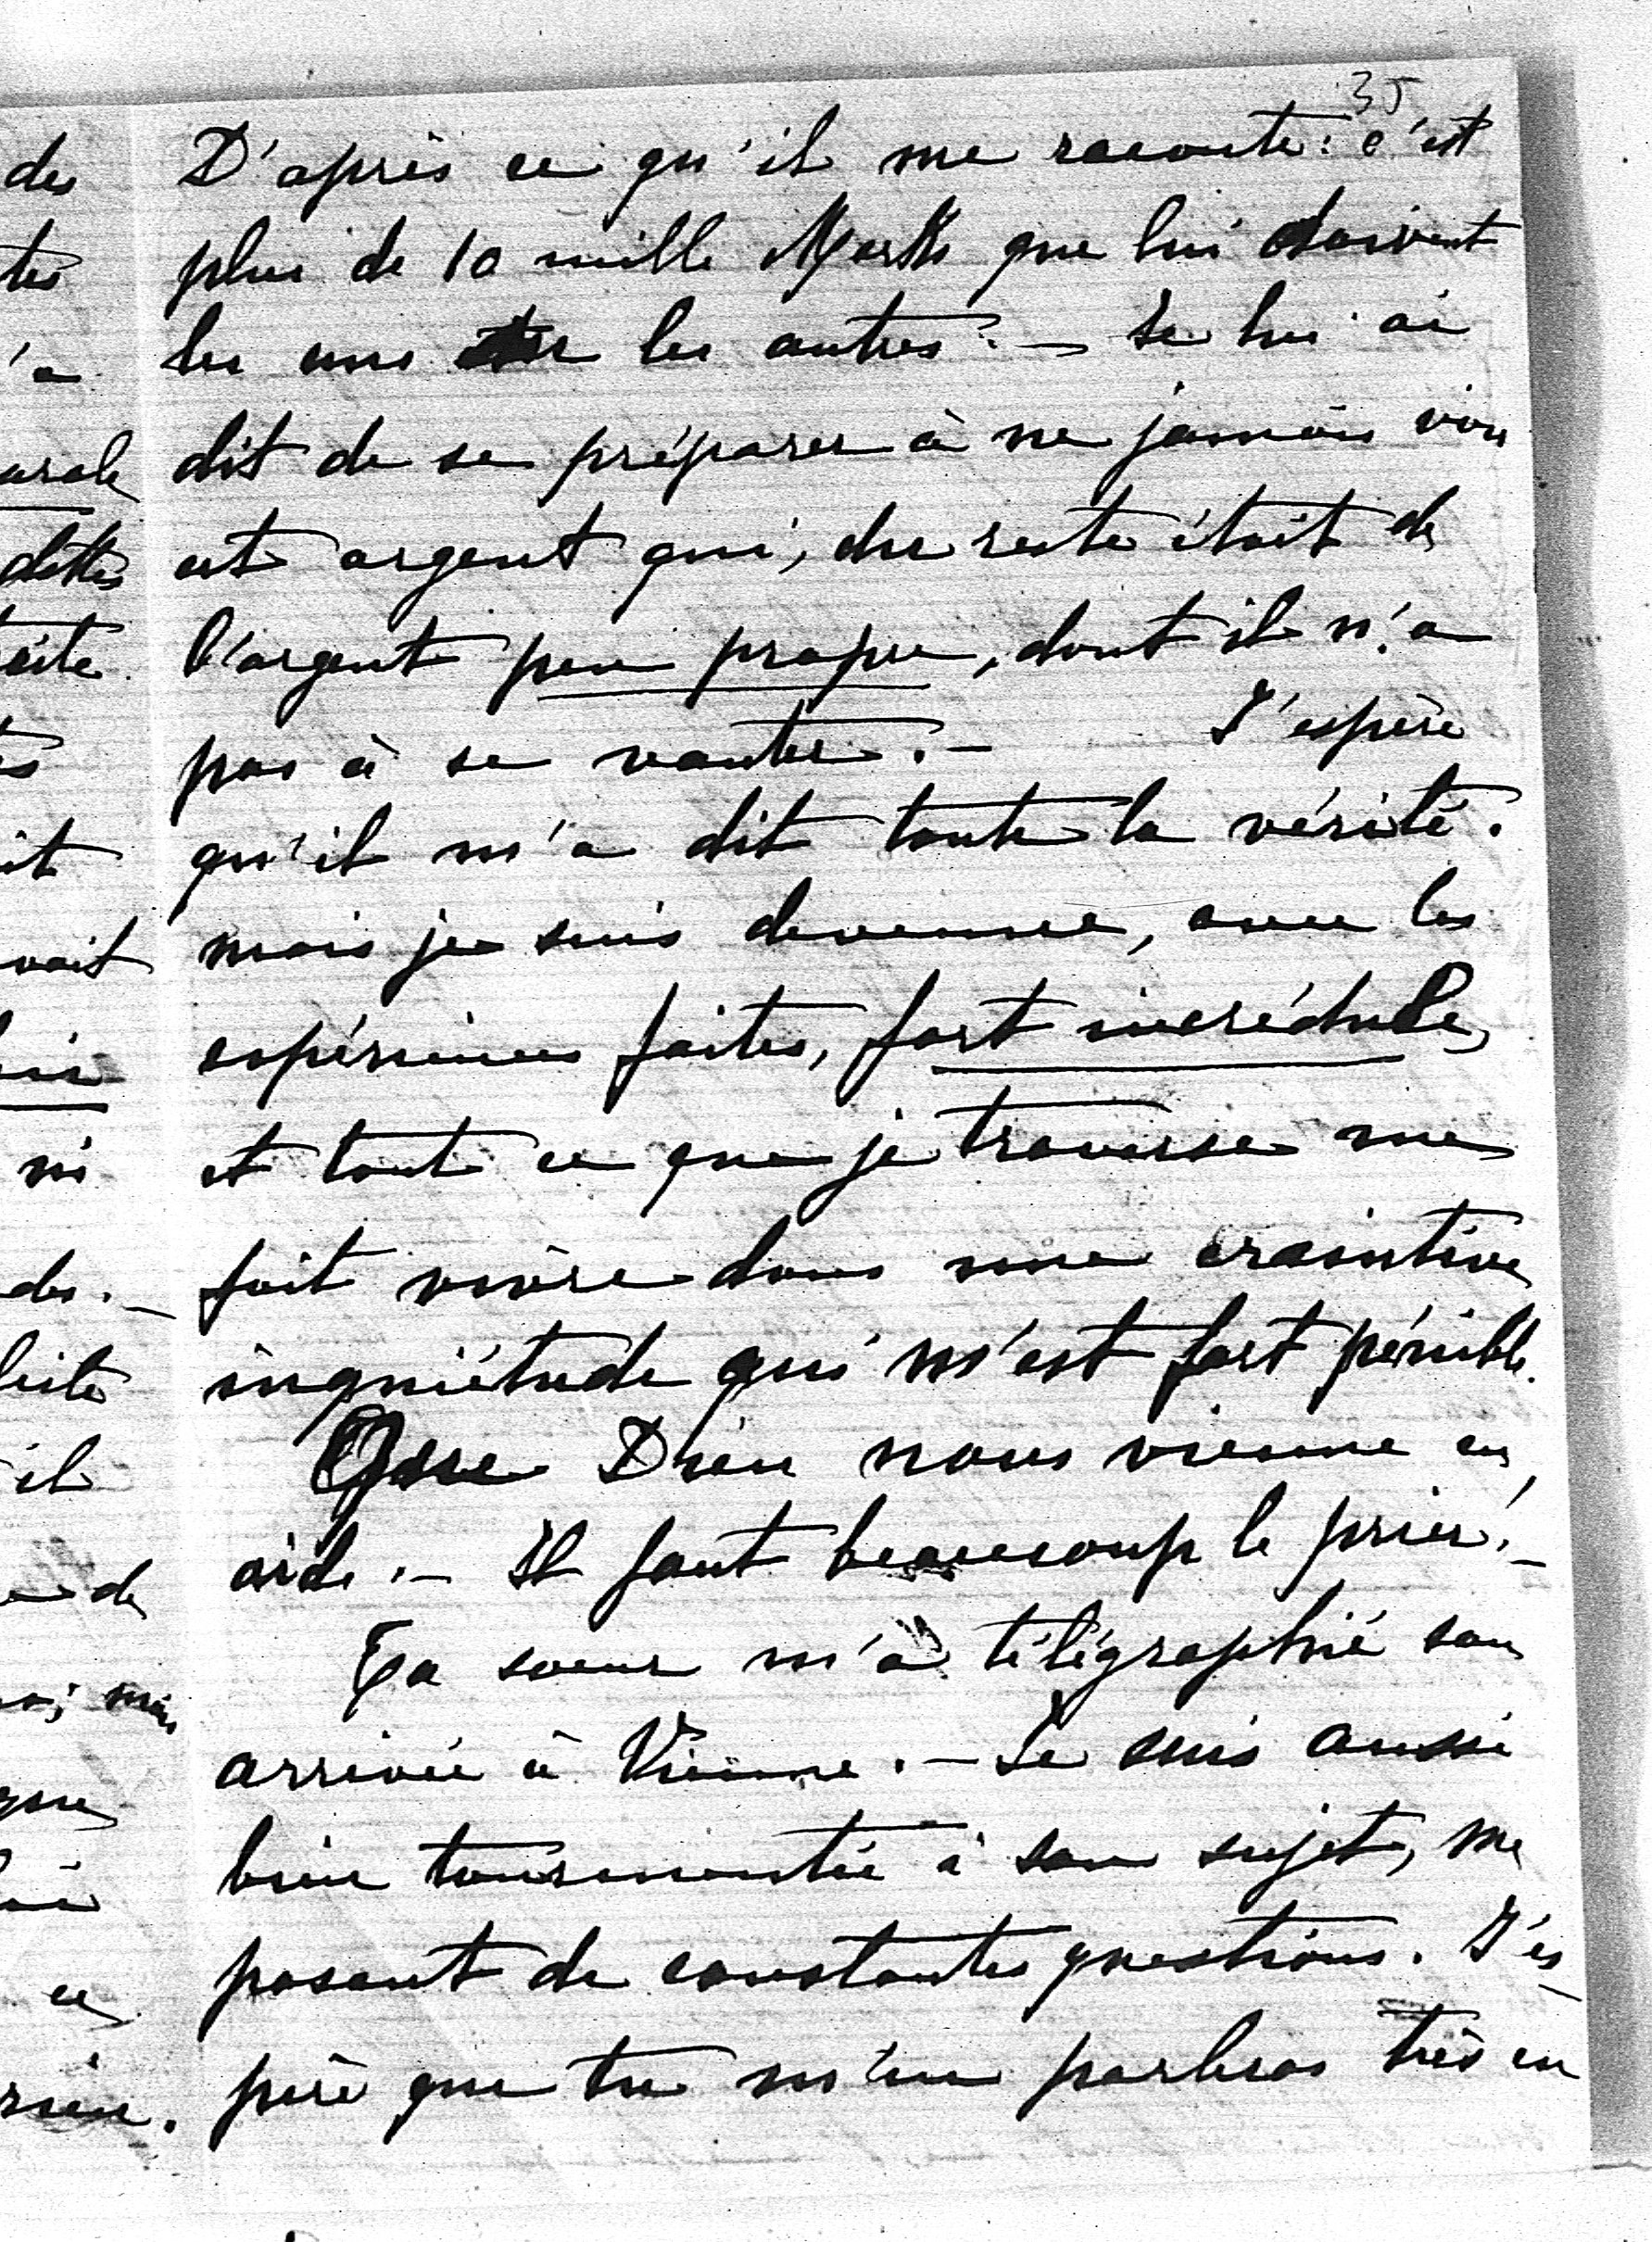 35
D'après ce qu'il me raconte: c'est
plus de 10 mille Marks que lui doivent
les uns et les autres. — Je lui ai
dit de se préparer à ne jamais voir
cet argent qui, du reste était de
l'argent peu propre, dont il n'a
pas à se vanter. — J'espère
qu'il m'a dit toute la vérité.
mais je suis devenue, avec les
expériences faites, fort incrédule,
et tout ce que je traverse me
fait vivre dans une craintive
inquiétude qui m'est fort pénible.
Que Dieu nous vienne en
aide. — Il faut beaucoup le prier. —
Ta soeur m'a télégraphié son
arrivée à Vienne. — Je suis aussi
bien tourmentée à son sujet, me
posant de constantes questions. J'es-
père que tu m'en parleras très en